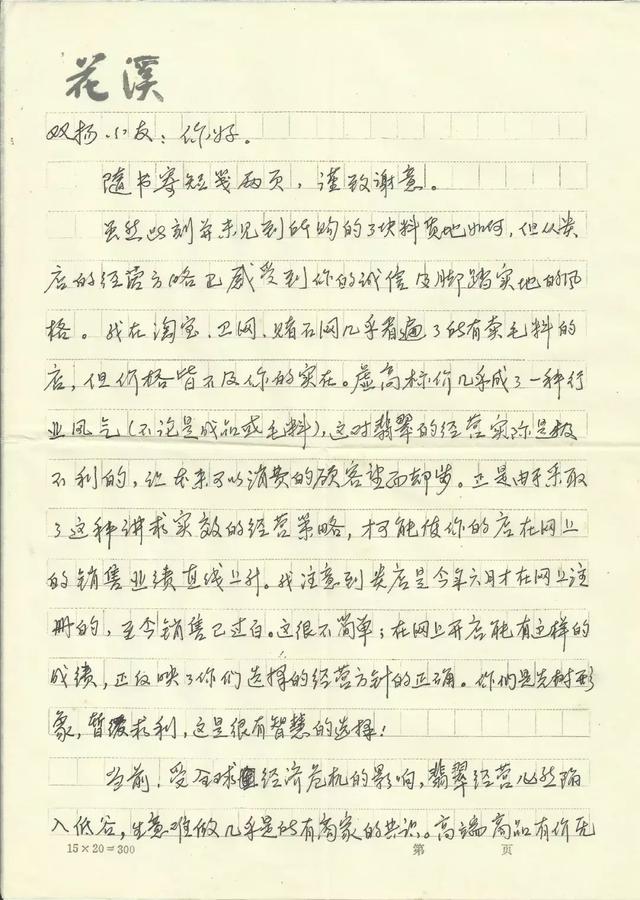 花溪
双扬小友：你好。
随书寄短笺两页，谨致谢意。
虽然此刻并未见到所购的3块料质地如何，但从贵
店的经营方略已感受到你的诚信及脚踏实地的风
格。我在淘宝、卫网、赌石网几乎看遍了所有卖毛料的
店，但价格皆不及你的实在。虚高标价几乎成了一种行
业风气（不论是成品或毛料），这对翡翠的经营实际是极
不利的，让本来可以消费的顾客望而却步。正是由于采取
了这种讲求实效的经营策略，才能使你的店在网上
的销售业绩直线上升。我注意到贵店是今年六月才在网上注
册的，至今销售已过百。这很不简单；在网上开店能有这样的
成绩，正反映了你们选择的经营方针的正确。你们是先树形
象，暂缓求利，这是很有智慧的选择！
当前，受全球经济危机的影响，翡翠经营必然陷
入低谷，生意难做几乎是所有商家的共识。高端商品有价无
15×20=300
第 页